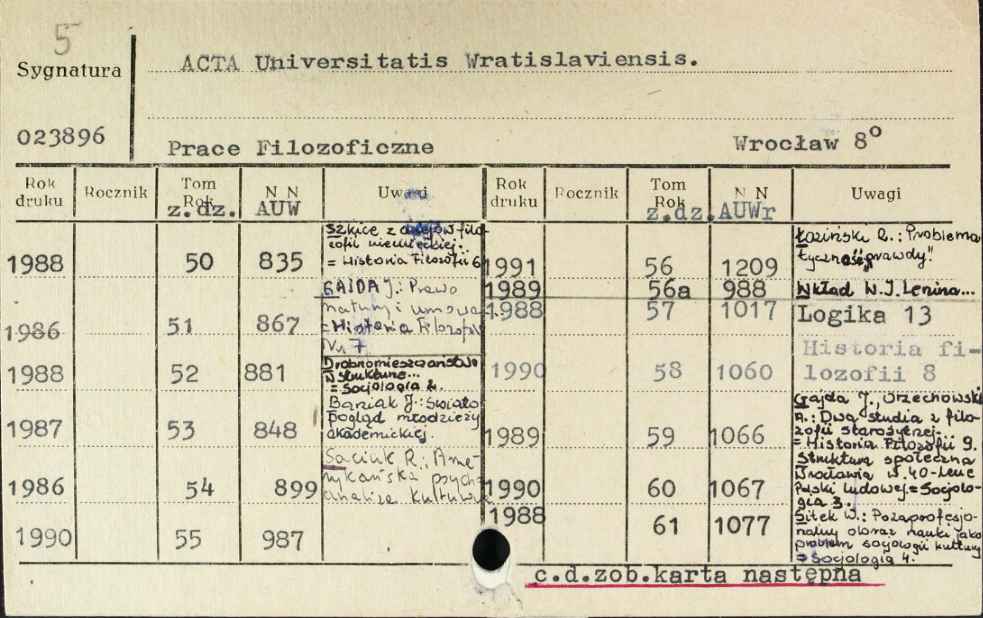 5
Sygnatura
ACTA Universitatis Wratislaviensis.
023896
Prace Filozoficzne
Wrocław 8°
Rok druku Rocznik Tom Rok z.dz. N N AUW Uwagi Rok druku Rocznik Tom Rok z.dz. N N AUWr Uwagi
1988 50 835 Szkice z dziejów filo-
zofii niemieckiej.
= Historia Filozofii 6
1986 51 867 GAJDA J.: Prawo
natury i umowa
= Historia Filozofii
Nr 7
1988 52 881 Drobnomieszczaństwo
w strukturze...
= Socjologia 2.
1987 53 848 Baniak J.: Świato
pogląd młodzieży
akademickiej.
1986 54 899 Saciuk R.: Ame-
rykańska psych
analiza kulturowa
1990 55 987
1991 56 1209 Łoziński R.: Problema
tyczność „prawdy"
1989 56a 988 Wkład W.I. Lenina...
1988 57 1017 Logika 13
1990 58 1060 Historia fi-
lozofii 8
1989 59 1066 Gajda J., Orzechowski
A.: Dwa studia z filo-
zofii starożytnej.
= Historia Filozofii 9.
1990 60 1067 Struktura społeczna
Wrocławia w 40-lecie
Polski Ludowej = Socjolo-
gia 3.
1988 61 1077 Sitek W.: Pozaprofesjo-
nalny obraz nauki jako
problem socjologii kultury
= Socjologia 4.
c.d.zob.karta następna